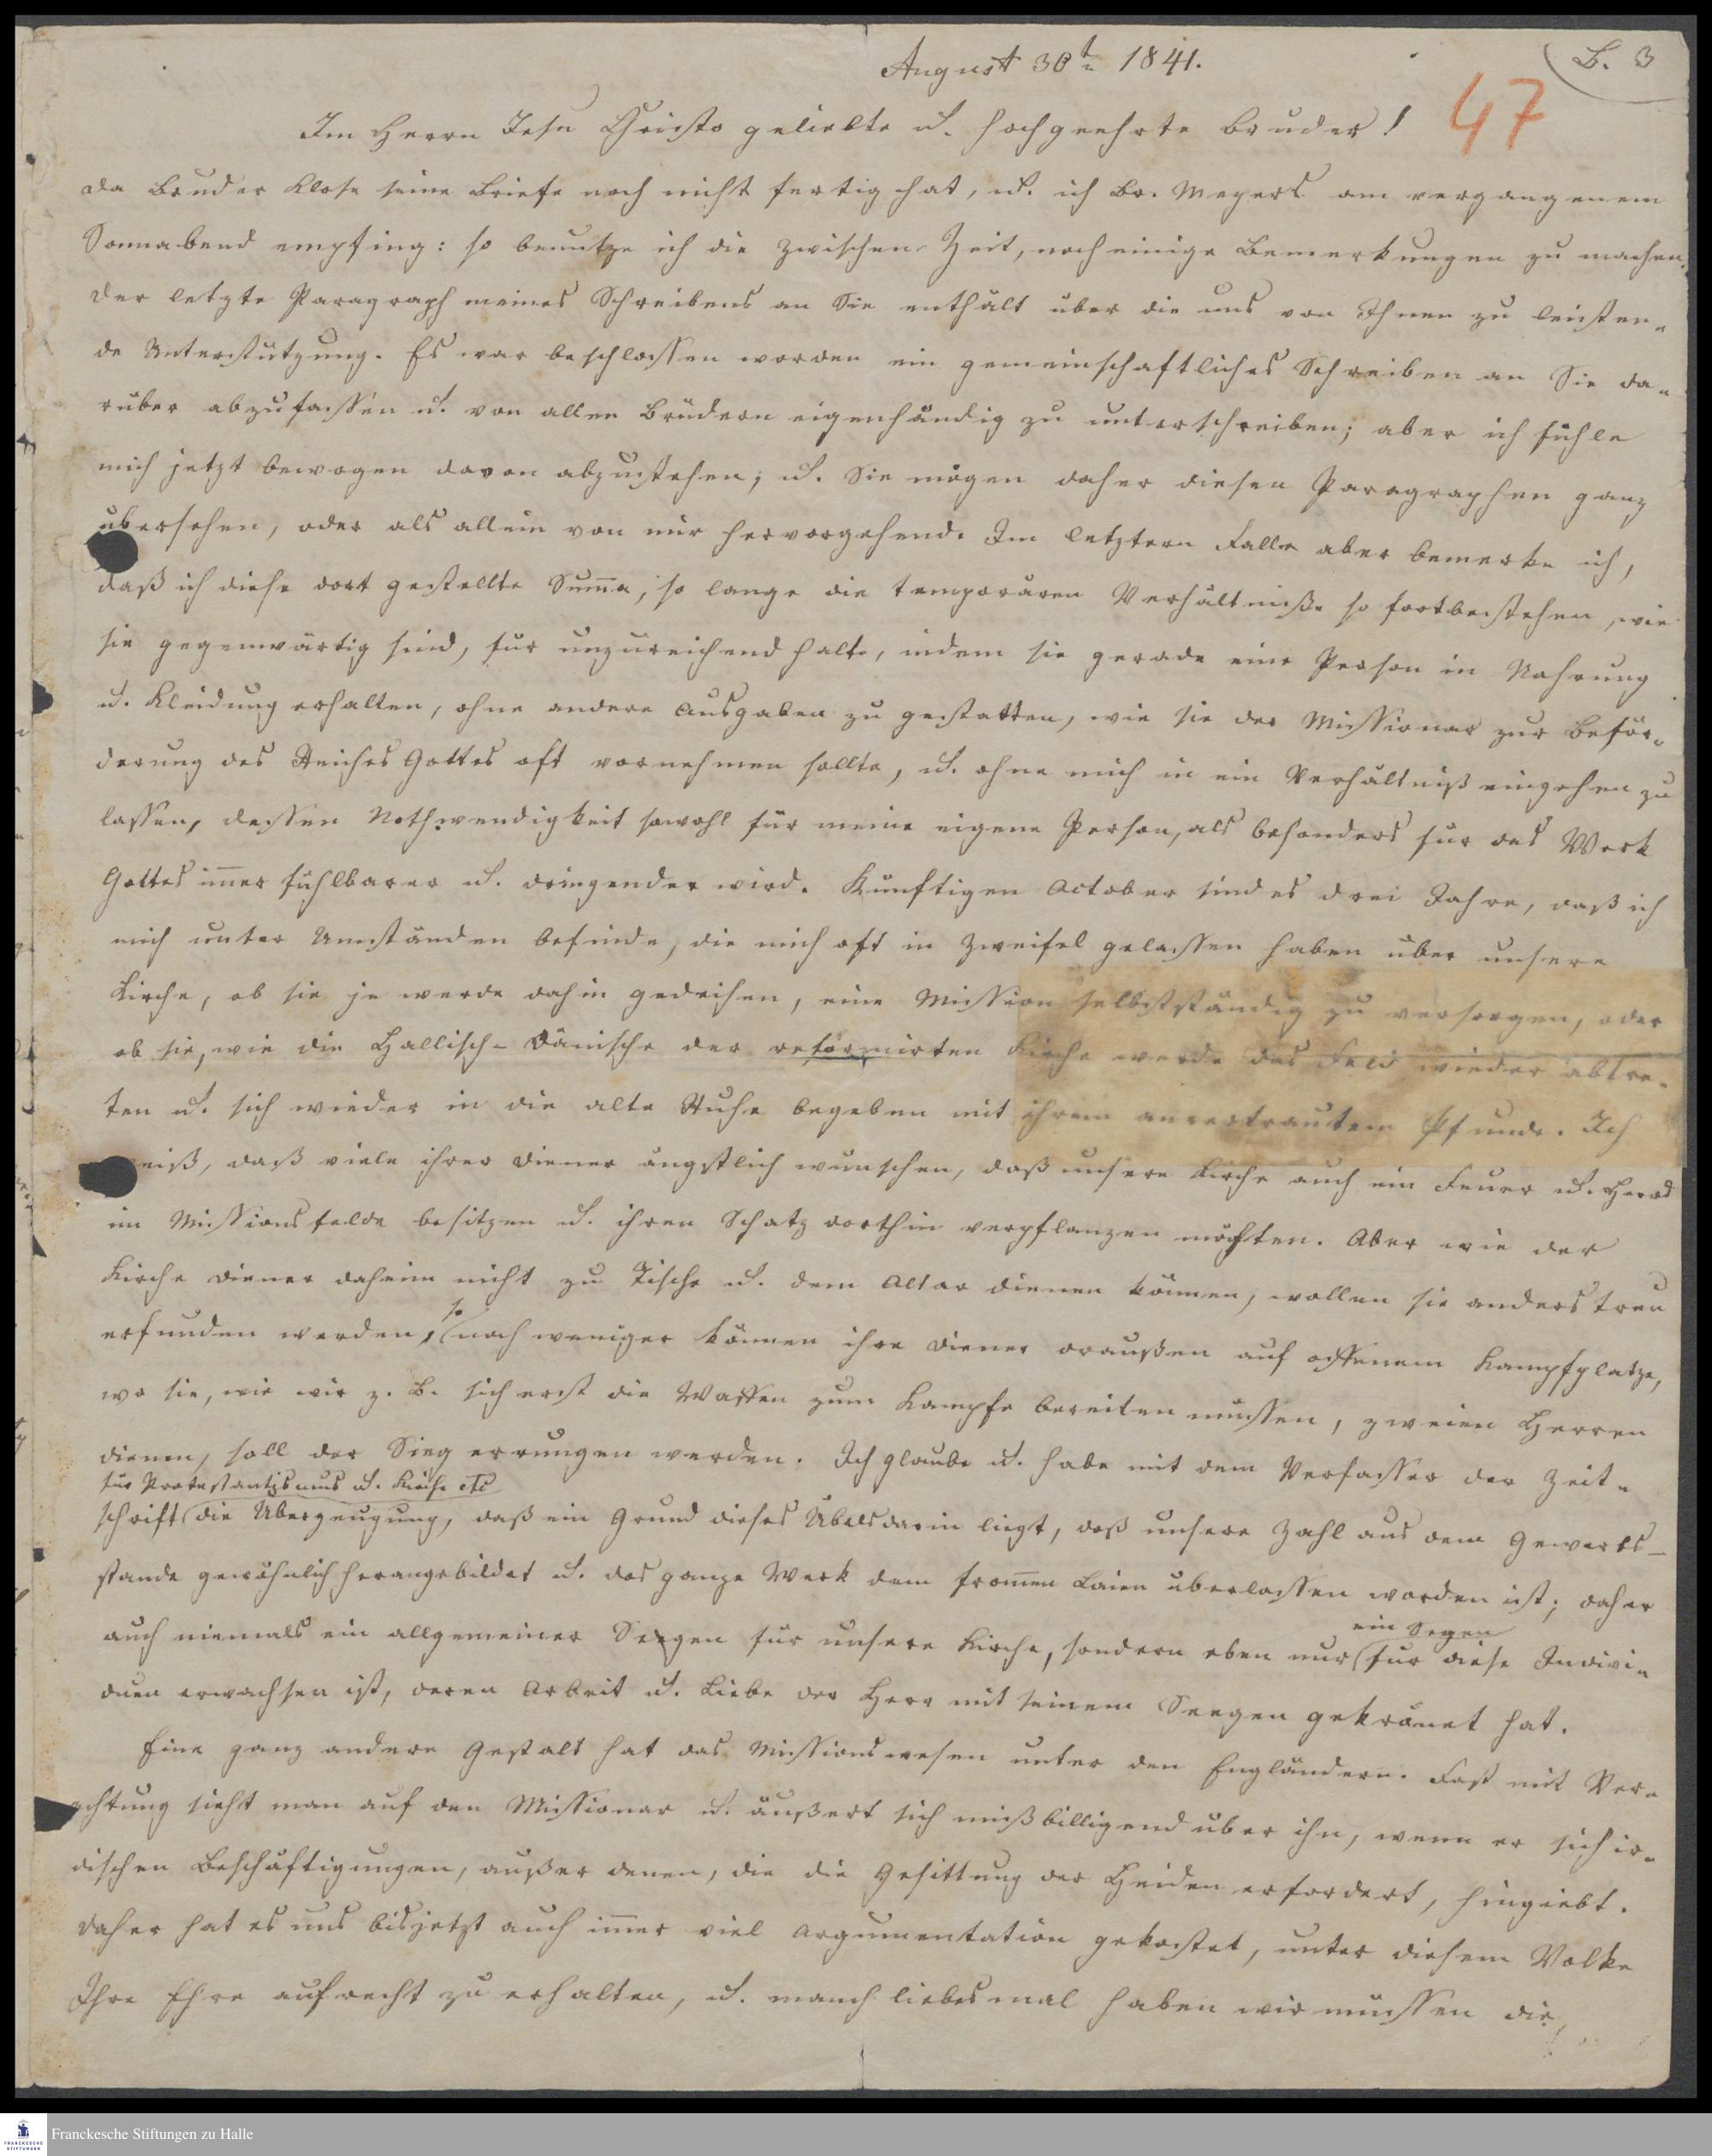 August 30t 1841.
B. 3
47
Im Herrn Jesu Christo geliebte u. hochgeehrte Bruder!
Da Bruder Klose seine Briefe noch nicht fertig hat, u. ich Br. Meyers am vergangenem
Sonnabend empfing: so benutze ich die Zwischen Zeit, noch einige Bemerkungen zu machen.
Der letzte Paragraph meines Schreibens an Sie enthält über die uns von Ihnen zu leisten-
de Unterstützung. Es war beschlossen worden ein gemeinschaftliches Schreiben an Sie da-
rüber abzufassen u. von allen Brüdern eigenhändig zu unterschreiben; aber ich fühle
mich jetzt bewogen davon abzustehen; u. Sie mögen daher diesen Paragraphen ganz
übersehen, oder als allein von mir hervorgehend. Im letztern Falle aber bemerke ich,
daß ich diese dort gestellte Summa, so lange die temporären Verhältniße so fortbestehen, wie
sie gegenwärtig sind, für unzureichend halte, indem sie gerade eine Person in Nahrung
u. Kleidung erhalten, ohne andere Ausgaben zu gestatten, wie sie der Missionar zur Beför-
derung des Reiches Gottes oft vornehmen sollte, u. ohne mich in ein Verhältniß eingehen zu
lassen, dessen Nothwendigkeit sowohl für meine eigene Person, als besonders für das Werk
Gottes immer fühlbarer u. dringender wird. Künftigen October sind es drei Jahre, daß ich
mich unter Umständen befinde, die mich oft in Zweifel gelassen haben über unsere
Kirche, ob sie je werde dahin gedeihen, eine Mission selbstständig zu versorgen, oder
ob sie, wie die Hallisch-Dänische der reformirten Kirche werde das Feld wieder abtre-
ten u. sich wieder in die alte Ruhe begeben mit ihrem anvertrautem Pfunde. Ich
weiß, daß viele ihrer Diener ängstlich wünschen, daß unsere Kirche auch ein Feuer u. Herd
im Missionsfelde besitzen u. ihren Schatz dorthin verpflanzen möchten. Aber wie der
Kirche Diener daheim nicht zu Tische u. dem Altar dienen können, wollen sie anders treu
erfunden werden, so noch weniger können ihre Diener draußen auf offenem Kampfplatze,
wo sie, wie wir z. B. sich erst die Waffen zum Kampfe bereiten müssen, zweien Herren
dienen, soll der Sieg errungen werden. Ich glaube u. habe mit dem Verfasser der Zeit-
für Protestantismus u. Kirche etc
schrift die Überzeugung, daß ein Grund dieses Übels darin liegt, daß unsere Zahl aus dem Gewerbs-
stande gewöhnlich herangebildet u. das ganze Werk dem frommen Laien überlassen worden ist; daher
auch niemals ein allgemeiner Seegen für unsere Kirche, sondern eben nur ein Segen für diese Indivi-
duen erwachsen ist, deren Arbeit u. Liebe der Herr mit seinem Seegen gekrönet hat.
Eine ganz andere Gestalt hat das Missionswesen unter den Engländern. Fast mit Ver-
achtung sieht man auf den Missionar u. äußert sich mißbilligend über ihn, wenn er sich ir-
dischen Beschäftigungen, außer denen, die die Gesittung der Heiden erfordert, hingiebt.
Daher hat es uns bisjetzt auch immer viel Argumentation gekostet, unter diesem Volke
Ihre Ehre aufrecht zu erhalten, u. manch liebes mal haben wir müssen die
Franckesche Stiftungen zu Halle